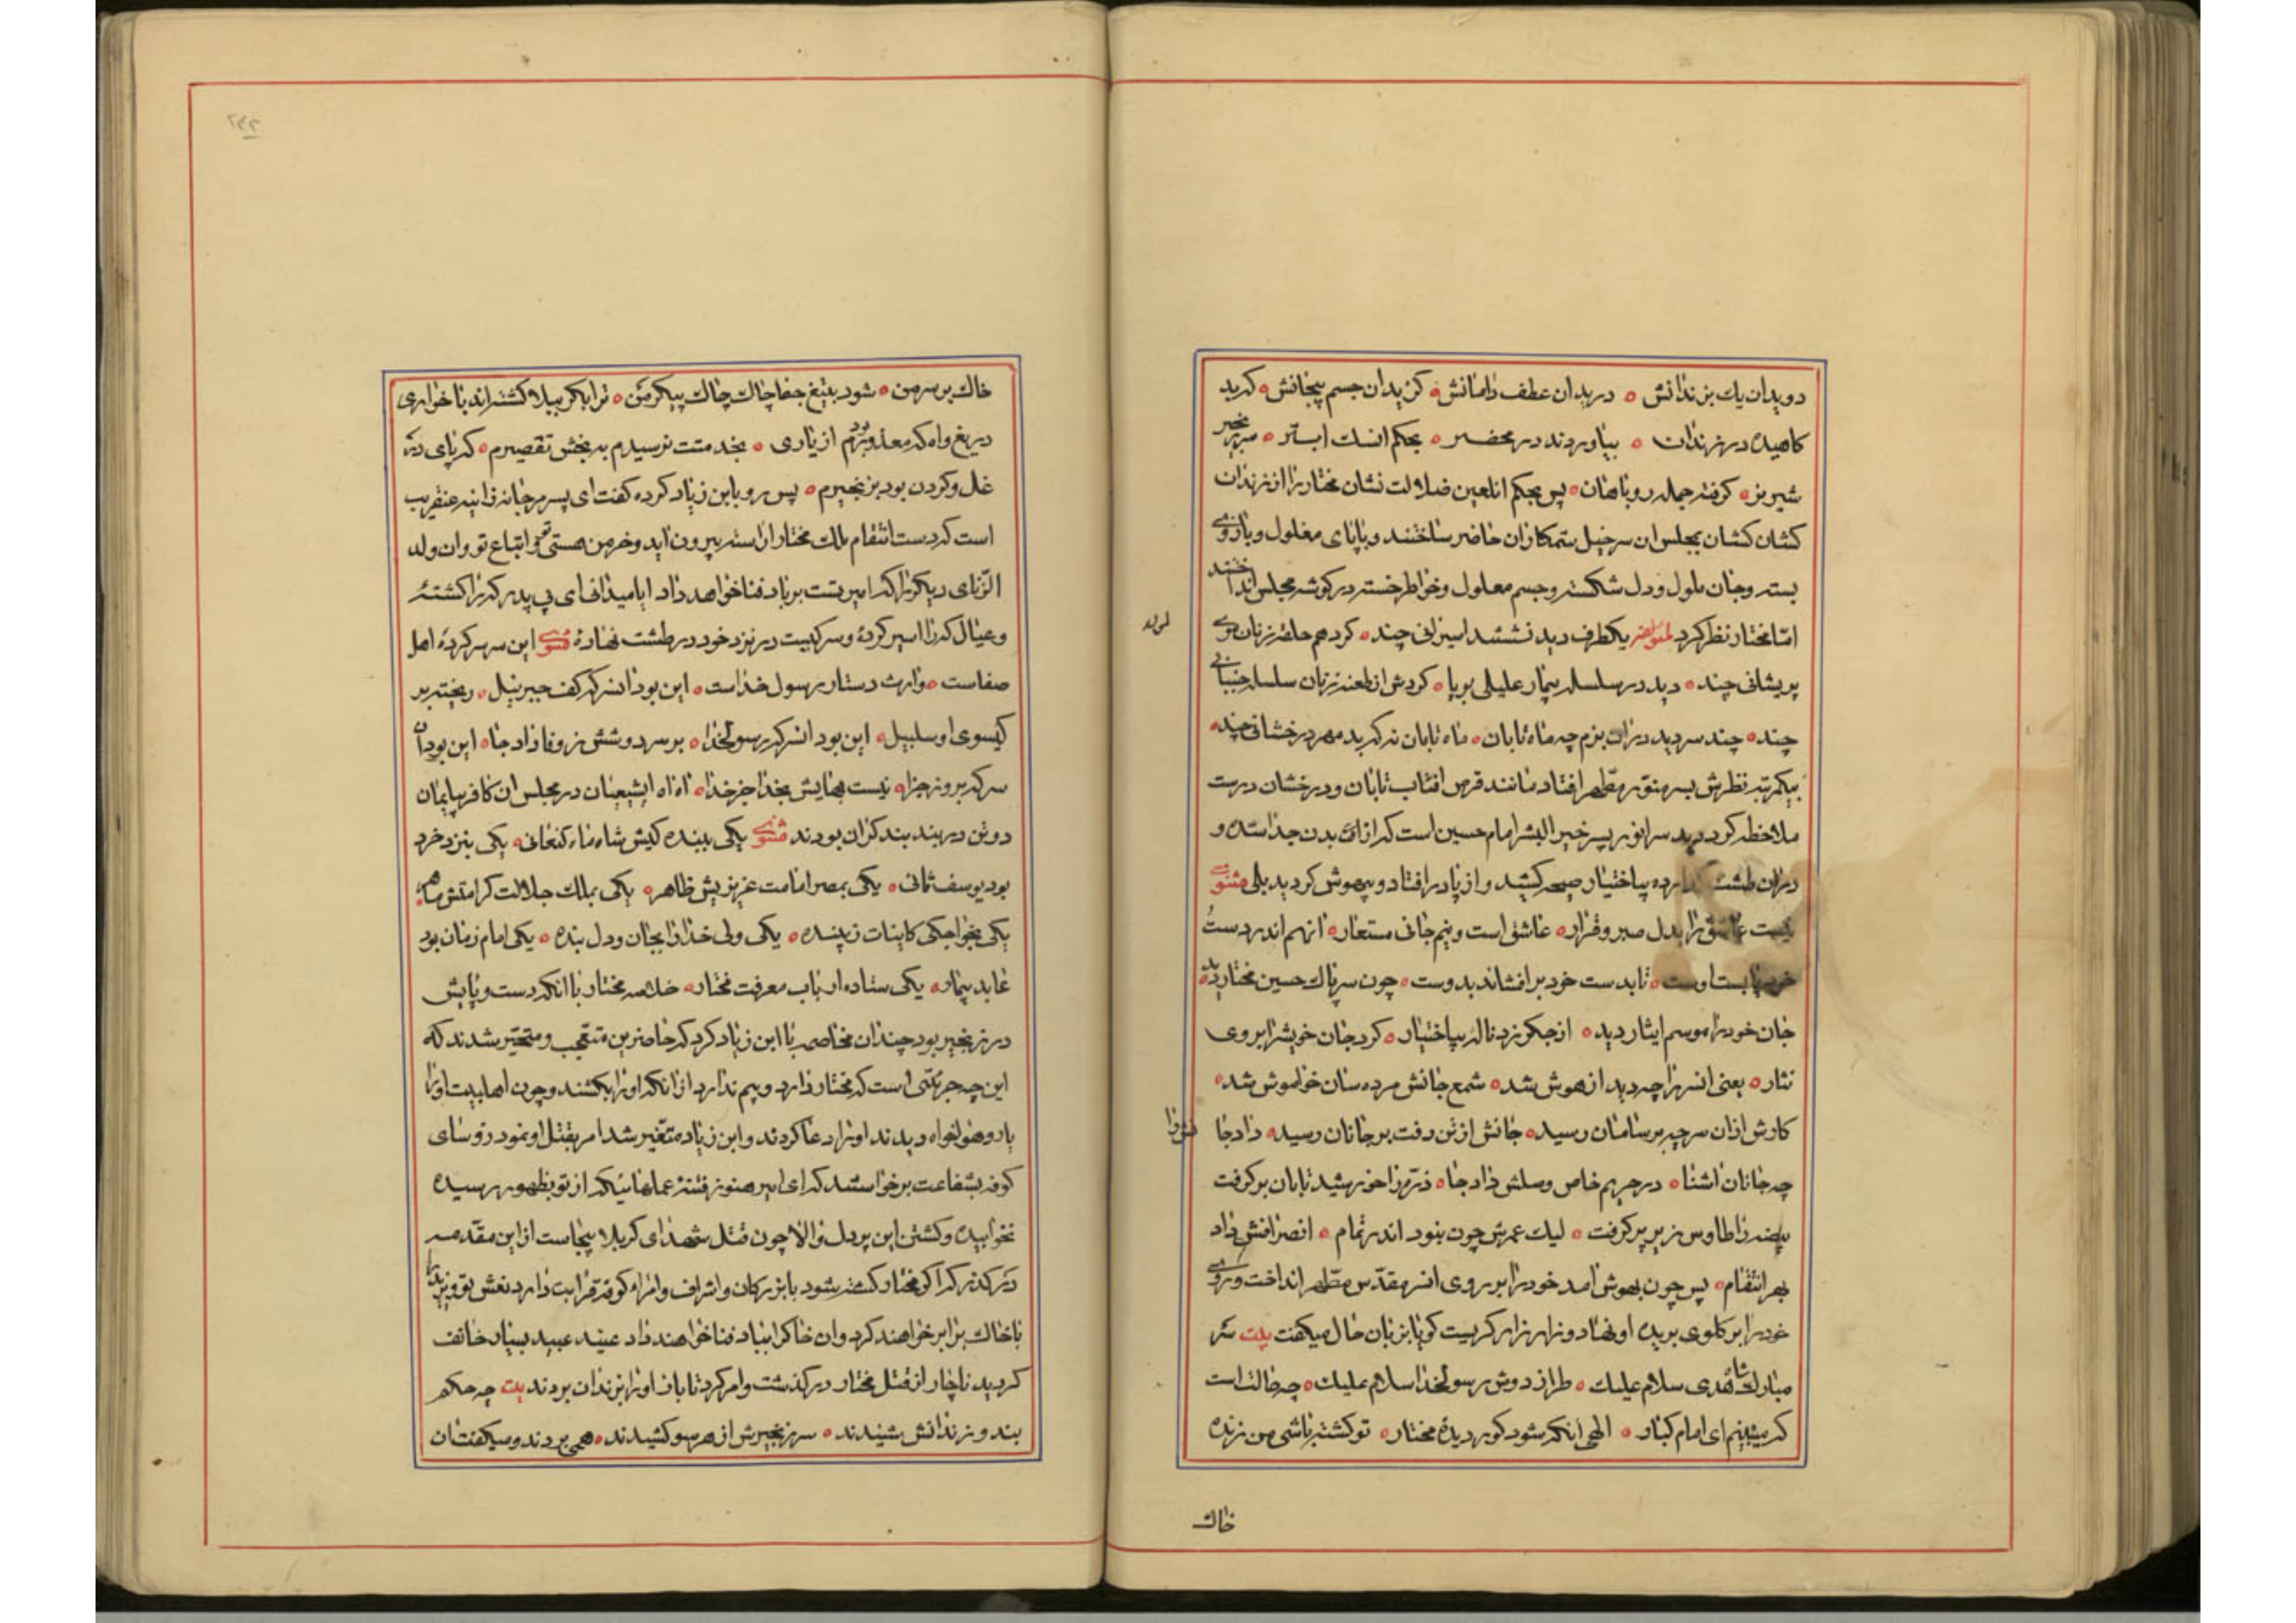 دویدان یك بزندانش ٥ دریدان عطف دامانش ٥ کزیدان جسم پیجانش ٥ کردید
کاهیده در زندان ٥ بیاوردند در محضر ٥ بحکم انسك ابتر ٥ بزنجیر
شیر نر ٥ کرفته جمله روباهان ٥ پس بحکم انلعین ضلالت نشان مختار را از زندان
کشان کشان بمجلس ان سرخیل ستمکاران حاضر ساختند و با پای مغلول و بازوی
بسته و جان ملول و دل شکسته و جسم معلول و خواطر خسته در کوشه مجلس انداختند
امّا مختار نظر کرد یکطرف دید نشستند اسیرانی چند ٥ کرد هم حلقه زنان موی
پریشانی چند ٥ دید در سلسله بیمار علیلی بر پا ٥ کردش از طعنه زنان سلسله جنبانی
چند ٥ چند سر دید در ان بزم چه ماه تابان ٥ ماه تابان نه که دید مهر درخشانی چند ٥
بیکمرتبه نظرش بسر منوّر مطهر افتاد مانند قرص افتاب تابان و درخشان درست
ملاحظه کرد دید سر انور پسر خیر البشر امام حسین است که از بدن جدا شده و
در ان طشت بی اختیار صیحه کشید و از پا در افتاد و بیهوش کردید بلی مثنوی
نیست عاشق را بدل صبر و قرار ٥ عاشق است و نیم جانی مستعار ٥ انهم اندر دست
خود پابست اوست ٥ تا بدست خود بر افشاند بدوست ٥ چون سر پاك حسین مختار دید ٥
جان خود را موسم ایثار دید ٥ از جکر زد ناله بی اختیار ٥ کرد جان خویش را بر وی
نثار ٥ یعنی انسر را چه دید از هوش شد ٥ شمع جانش مرده سان خواموش شد ٥
کارش از ان سر چه بر سامان رسید ٥ جانش از تن رفت بر جانان رسید ٥ داد جا
چه جانان اشنا ٥ در حریم خاص وصلش داد جا ٥ ذرّه را خورشید تابان بر کرفت
بیضه را طاوس زیر پر کرفت ٥ لیك عمرش چون نبود اندر تمام ٥ انصرافش داد
بهر انتقام ٥ پس چون بهوش امد خود را بر روی انسر مقدّس مطهر انداخت و روی
خود را بر کلوی بریده او نهاد و زار زار کریست کویا بزبان حال میکفت بیت سر
مبارك شاه هدی سلام علیك ٥ طراز دوش رسولخدا سلام علیك ٥ چه حالت است
که میبینم ای امام کبار ٥ الهی انکه شود کور دیدهٔ مختار ٥ تو کشته باشی و من زنده
خاك
خاك بر سر من ٥ شود بتیغ جفا چاك چاك پیکر من ٥ ترا بکربلا کشته اند با خواری
دریغ و اه که معذور بودم از یاری ٥ بخدمتت نرسیدم به بخش تقصیرم ٥ که پای در
غل و کردن بود بزنجیرم ٥ پس رو بابن زیاد کرده کفت ای پسر مرجانه زانیه عنقریب
است که دست انتقام ملك مختار از استین بیرون اید و خرمن هستی تو و اتباع تو و ان ولد
الزّنای دیکر را که امیر تست بر باد فنا خواهد داد ایا میدانی ای بی پدر که را کشتهٔ
و عیال که را اسیر کردهٔ و سر کیست در نزد خود در طشت نهادهٔ مثنوی این سر سر کردهٔ اهل
صفاست ٥ وارث دستار رسول خداست ٥ این بود انسر که کف جبرئیل ٥ ریخته بر
کیسوی او سلبیل ٥ این بود انسر که رسولخدا ٥ بر سر دوشش ز وفا داد جا ٥ این بود ان
سر که بروز جزا ٥ نیست بهایش بخدا جز خدا ٥ اه اه ایشیعیان در مجلس ان کافر بیایمان
دو تن در بند بند کران بودند مثنوی یکی ببنده کیش شاه ماه کنعانی ٥ یکی بنزد خرد
بود یوسف ثانی ٥ یکی بمصر امامت عزیزیش ظاهر ٥ یکی بملك جلالت کرامتش ماهر ٥
یکی بخواجکی کاینات زیبنده ٥ یکی ولی خدا را بجان و دل بنده ٥ یکی امام زمان بود
عابد بیمار ٥ یکی ستاده ارباب معرفت مختار ٥ خلاصه مختار با انکه دست و پایش
در زنجیر بود چندان مخاصمه با ابن زیاد کرد که حاضرین متعّجب و متحّیر شدند که
این چه جرئتی است که مختار دارد و بیم ندارد از انکه او را بکشند و چون اهلبیت او را
یار و هواخواه دیدند او را دعا کردند و ابن زیاد متغّیر شد امر بقتل او نمود رؤسای
کوفه بشفاعت برخواستند که ای امیر هنوز فتنهٔ عملهائیکه از تو بظهور رسیده
نخوابیده و کشتن این پر دل والا چون قتل شهدای کربلا بیجاست از این مقدّمه
در کذر که اکر مختار کشته شود با بزرکان و اشراف و امراء کوفه قرابت دارد نعش تو و یزید را
با خاك برابر خواهند کرد و ان خاکرا بباد فنا خواهند داد عنید عبید بنیاد خائف
کردید ناچار از قتل مختار در کذشت و امر کرد تا باز او را بزندان بردند بیت چه حکم
بند و زندانش شنیدند ٥ سر زنجیرش از هر سو کشیدند ٥ همی بردند و میکفت ان